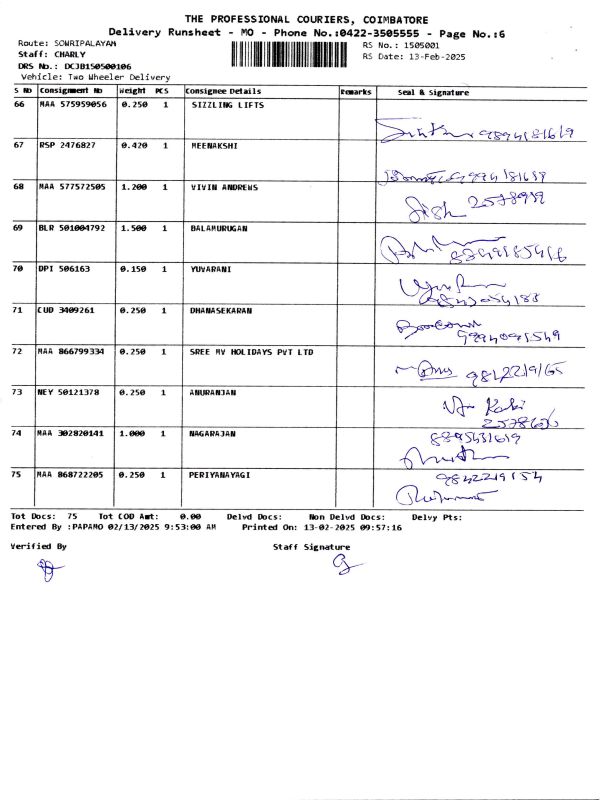 THE PROFESSIONAL COURIERS, COIMBATORE
Delivery Runsheet - MO - Phone No.:0422-3505555 - Page No.:6
Route: SOWRIPALAYAM
RS No.: 1505001
Staff: CHARLY
RS Date: 13-Feb-2025
DRS No.: DCJB150500106
Vehicle: Two Wheeler Delivery
S No Consignment No Weight PCS Consignee Details Remarks Seal & Signature
66 MAA 575959056 0.250 1 SIZZLING LIFTS
9894181619
67 RSP 2476827 0.420 1 MEENAKSHI
9994181619
68 MAA 577572505 1.200 1 VIVIN ANDREWS
69 BLR 501004792 1.500 1 BALAMURUGAN
70 DPI 506163 0.150 1 YUVARANI
71 CUD 3409261 0.250 1 DHANASEKARAN
72 MAA 866799334 0.250 1 SREE MV HOLIDAYS PVT LTD
73 NEY 50121378 0.250 1 ANURANJAN
74 MAA 302820141 1.000 1 NAGARAJAN
75 MAA 868722205 0.250 1 PERIYANAYAGI
9842219154
Tot Docs: 75 Tot COD Amt: 0.00 Delvd Docs: Non Delvd Docs: Delvy Pts:
Entered By :PAPAMO 02/13/2025 9:53:00 AM Printed On: 13-02-2025 09:57:16
Verified By Staff Signature